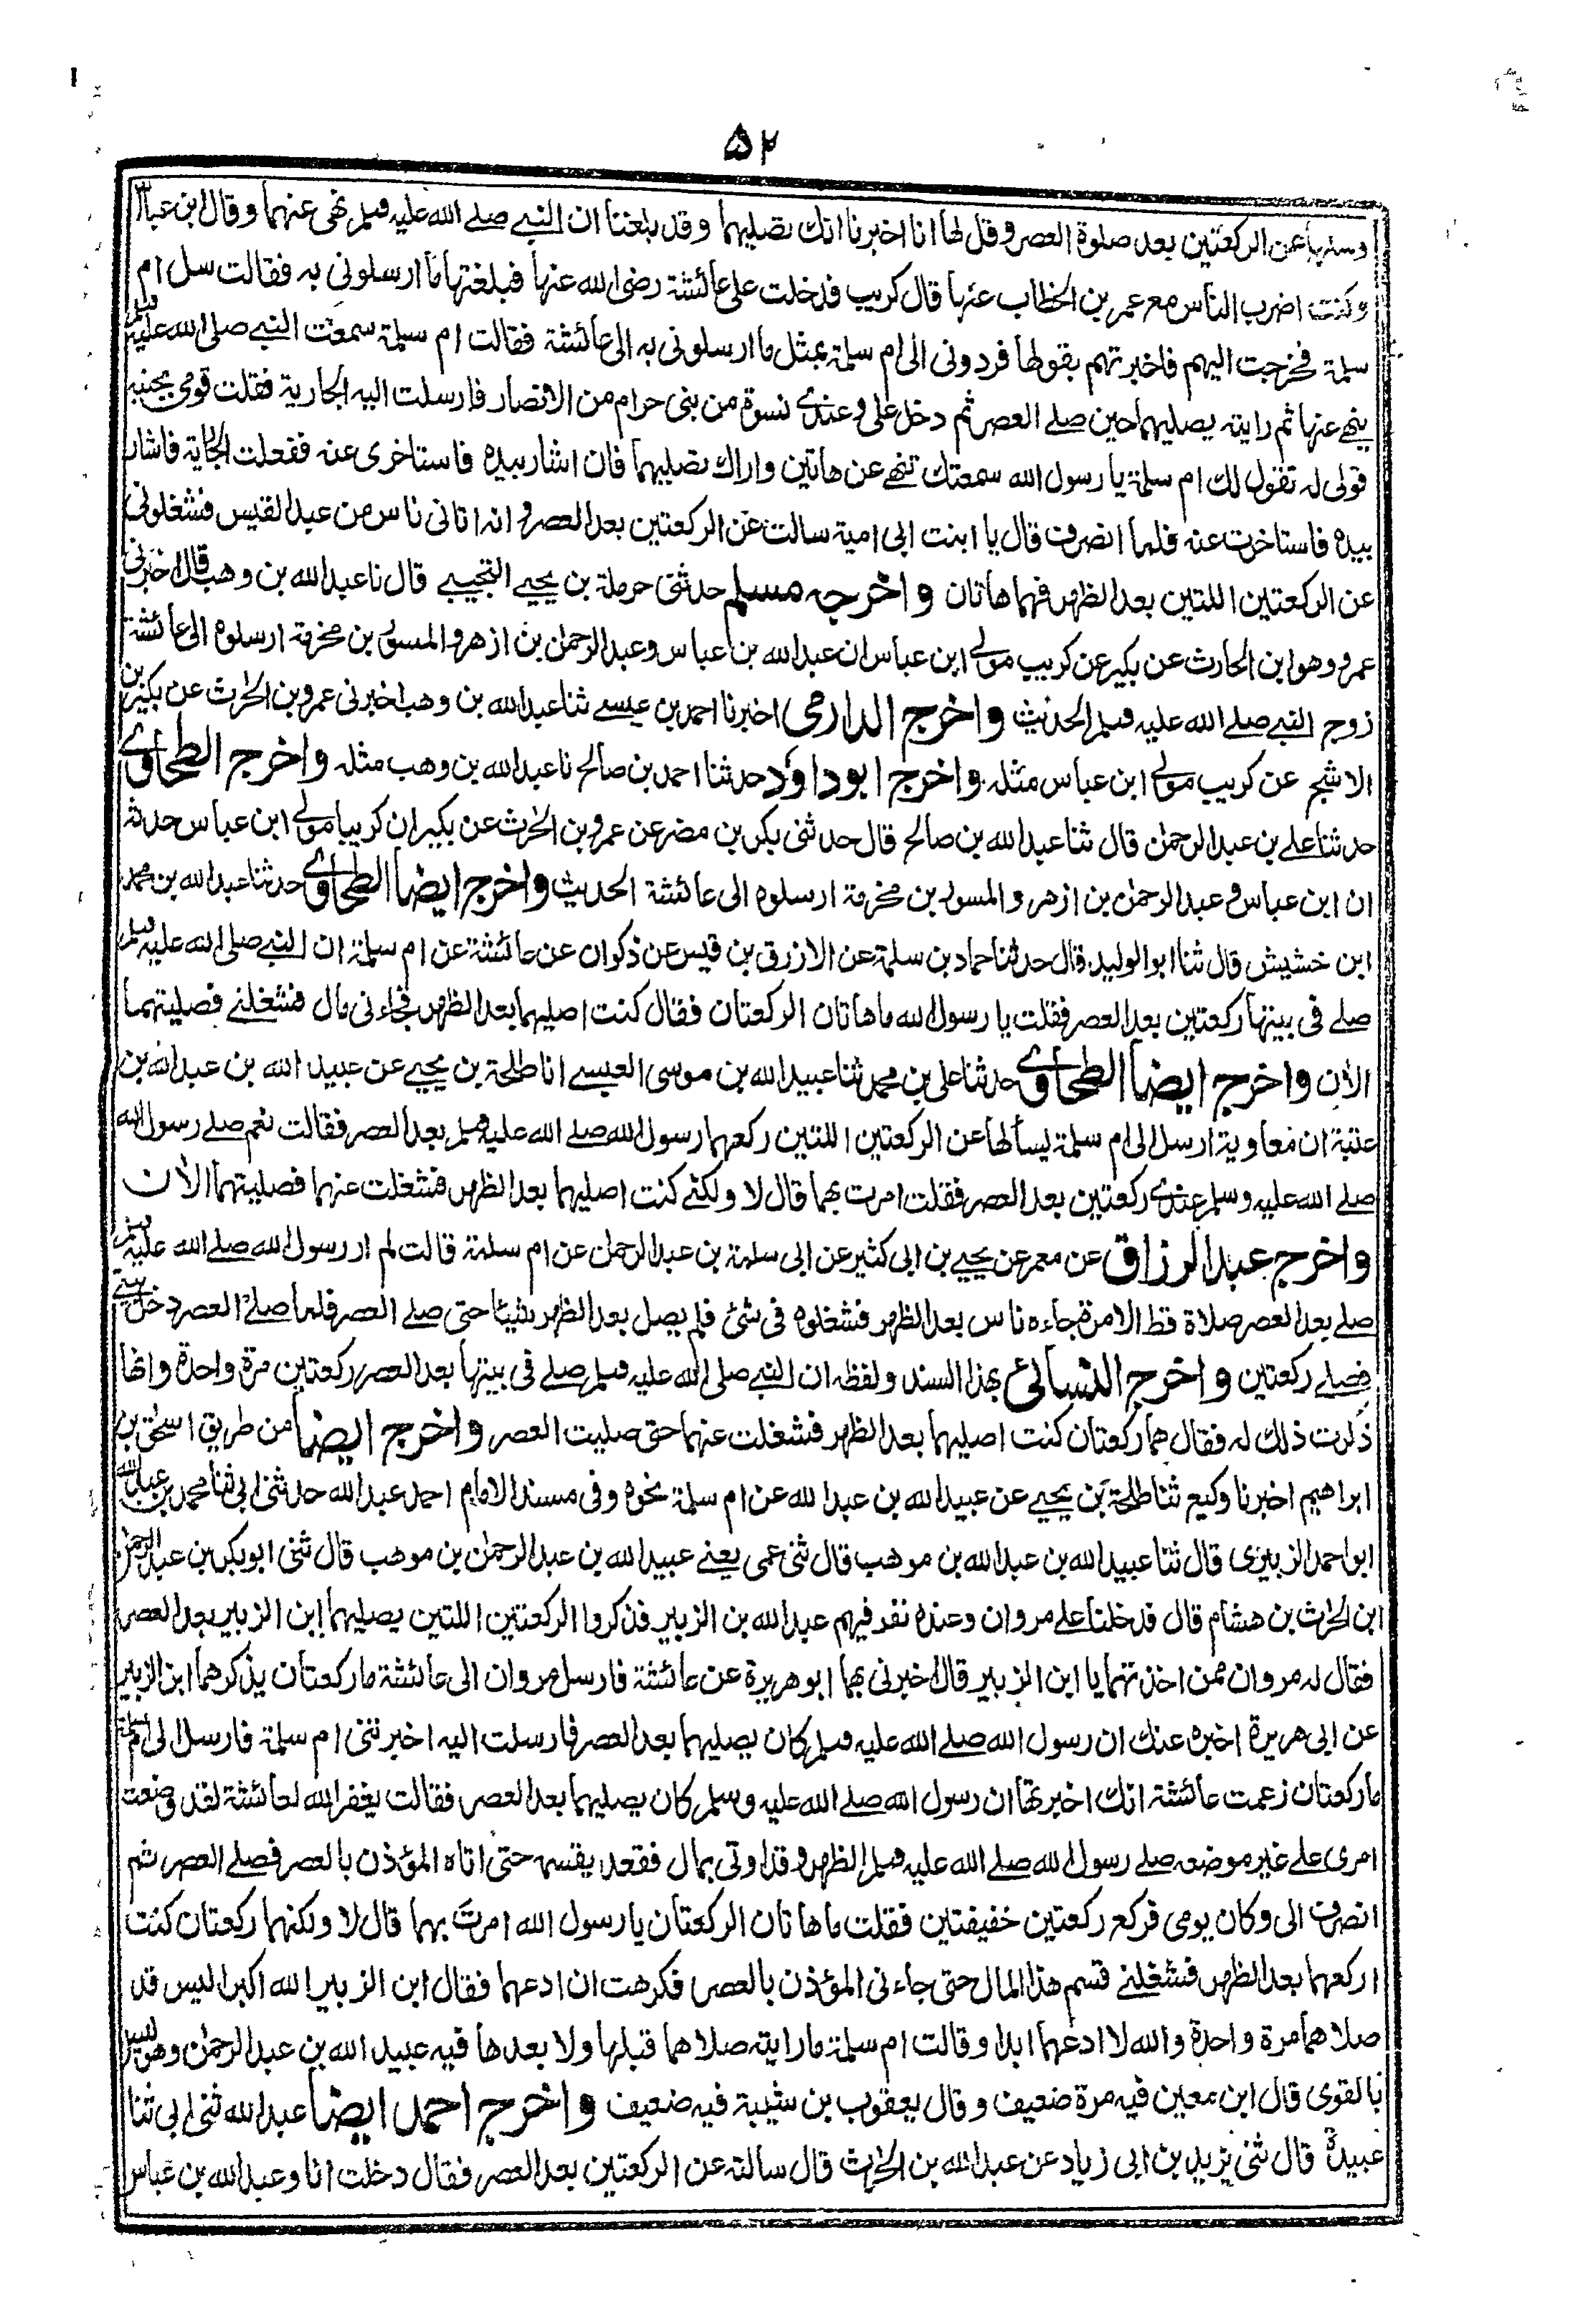 ۵۲
وسلها عن الركعتين بعد صلوة العصر وقل لها انا اخبرنا انك تصليهما وقد بلغنا ان النبي صلے الله عليه وسلم نهى عنهما وقال ابن عباس
وكنت اضرب الناس مع عمر بن الخطاب عنها قال كريب فدخلت على عائشة رضى الله عنها فبلغتها ما ارسلونى به فقالت سل ام
سلمة فخرجت اليهم فاخبرتهم بقولها فردونى الى ام سلمة بمثل ما ارسلونى به الى عائشة فقالت ام سلمة سمعت النبے صلى الله عليه وسلم
ينهے عنها ثم رايته يصليهما حين صلے العصر ثم دخل على وعندے نسوة من بنى حرام من الانصار فارسلت اليه الجارية فقلت قومى بجنبه
قولى له تقول لك ام سلمة يا رسول الله سمعتك تنهے عن هاتين واراك تصليهما فان اشار بيده فاستاخرى عنه ففعلت الجارية فاشار
بيده فاستاخرت عنه فلما انصرف قال يا ابنت ابى امية سالت عن الركعتين بعد العصر وانه اتانى ناس من عبد القيس فشغلونى
عن الركعتين اللتين بعد الظهر فهما هاتان واخرجه مسلم حدثنى حرملة بن يحيے التجيبے قال نا عبد الله بن وهب قال اخبرنى
عمرو وهو ابن الحارث عن بكير عن كريب مولے ابن عباس ان عبد الله بن عباس وعبد الرحمٰن بن ازهر والمسور بن مخرمة ارسلوه الى عائشة
زوج النبے صلے الله عليه وسلم الحديث واخرج الدارمى اخبرنا احمد بن عيسے ثنا عبد الله بن وهب اخبرنى عمرو بن الحٰرث عن بكير بن
الاشج عن كريب مولے ابن عباس مثله واخرج ابوداود حدثنا احمد بن صالح نا عبد الله بن وهب مثله واخرج الطحاوے
حدثنا علے بن عبد الرحمٰن قال ثنا عبد الله بن صالح قال حدثنى بكر بن مضر عن عمرو بن الحٰرث عن بكير ان كريبا مولے ابن عباس حدثه
ان ابن عباس وعبد الرحمٰن بن ازهر والمسور بن مخرمة ارسلوه الى عائشة الحديث واخرج ايضا الطحاوے حدثنا عبد الله بن محمد
ابن خشيش قال ثنا ابو الوليد قال حدثنا حماد بن سلمة عن الازرق بن قيس عن ذكوان عن عائشة عن ام سلمة ان النبے صلى الله عليه وسلم
صلے فى بيتها ركعتين بعد العصر فقلت يا رسول الله ما هاتان الركعتان فقال كنت اصليهما بعد الظهر فجاءنى مال فشغلنے فصليتهما
الاٰن واخرج ايضا الطحاوے حدثنا على بن محمد ثنا عبيد الله بن موسى العبسے انا طلحة بن يحيے عن عبيد الله بن عبد الله بن
عتبة ان معاوية ارسل الى ام سلمة يسألها عن الركعتين اللتين ركعهما رسول الله صلے الله عليه وسلم بعد العصر فقالت نعم صلے رسول الله
صلے الله عليه وسلم عندے ركعتين بعد العصر فقلت امرت بهما قال لا ولكنے كنت اصليهما بعد الظهر فشغلت عنهما فصليتهما الاٰن
واخرج عبد الرزاق عن معمر عن يحيے بن ابى كثير عن ابى سلمة بن عبد الرحمٰن عن ام سلمة قالت لم ار رسول الله صلے الله عليه وسلم
صلے بعد العصر صلاة قط الا مرة جاءه ناس بعد الظهر فشغلوه فى شئ فلم يصل بعد الظهر شيئا حتى صلے العصر فلما صلے العصر دخل بيتے
فصلے ركعتين واخرج النسائى بهذا السند ولفظه ان النبے صلى الله عليه وسلم صلے فى بيتها بعد العصر ركعتين مرة واحدة وانها
ذكرت ذلك له فقال هما ركعتان كنت اصليهما بعد الظهر فشغلت عنهما حتى صليت العصر واخرج ايضا من طريق اسحٰق بن
ابراهيم اخبرنا وكيع ثنا طلحة بن يحيے عن عبيد الله بن عبد الله عن ام سلمة نحوه وفى مسند الامام احمد عبد الله حدثنى ابى ثنا محمد بن عبد الله
ابو احمد الزبيرى قال ثنا عبيد الله بن عبد الله بن موهب قال ثنى عمى يعنے عبيد الله بن عبد الرحمٰن بن موهب قال ثنى ابو بكر بن عبد الرحمٰن
ابن الحٰرث بن هشام قال قد خلنا علے مروان وعنده نفر فيهم عبد الله بن الزبير فذكروا الركعتين اللتين يصليهما ابن الزبير بعد العصر
فقال له مروان ممن اخذتهما يا ابن الزبير قال اخبرنى بهما ابو هريرة عن عائشة فارسل مروان الى عائشة ما ركعتان يذكرهما ابن الزبير
عن ابى هريرة اخبره عنك ان رسول الله صلے الله عليه وسلم كان يصليهما بعد العصر فارسلت اليه اخبرتنى ام سلمة فارسل الى ام سلمة
ما ركعتان زعمت عائشة انك اخبرتها ان رسول الله صلے الله عليه وسلم كان يصليهما بعد العصر فقالت يغفر الله لعائشة لقد وضعت
امرى علے غير موضعه صلے رسول الله صلے الله عليه وسلم الظهر وقد اوتى بمال فقعد يقسمه حتى اتاه المؤذن بالعصر فصلے العصر ثم
انصرف الى وكان يومى فركع ركعتين خفيفتين فقلت ما هاتان الركعتان يا رسول الله امرت بهما قال لا ولكنهما ركعتان كنت
اركعهما بعد الظهر فشغلنے قسم هذا المال حتى جاءنى المؤذن بالعصر فكرهت ان ادعهما فقال ابن الزبير الله اكبر اليس قد
صلاهما مرة واحدة والله لا ادعهما ابدا وقالت ام سلمة ما رايته صلاهما قبلها ولا بعدها فيه عبيد الله بن عبد الرحمٰن وهو ليس
بالقوى قال ابن معين فيه مرة ضعيف وقال يعقوب بن شيبة فيه ضعيف واخرج احمد ايضا عبد الله ثنى ابى ثنا
عبيدة قال ثنى يزيد بن ابى زياد عن عبد الله بن الحٰرث قال سالته عن الركعتين بعد العصر فقال دخلت انا وعبد الله بن عباس